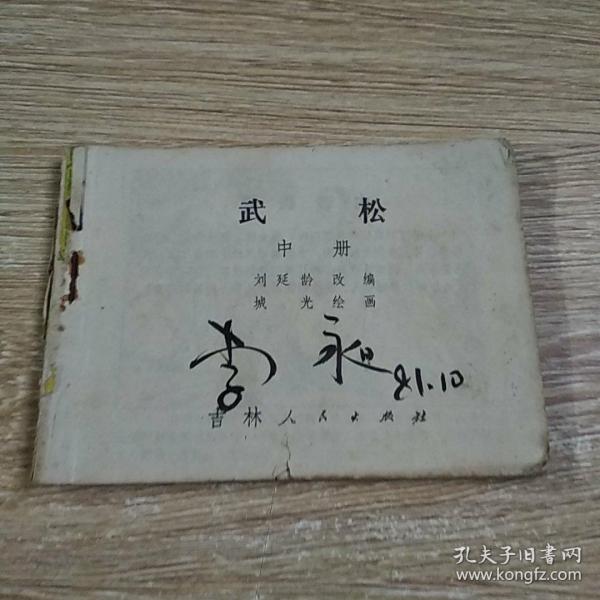 武松
中册
刘廷龄 改编
城光绘画
李 永 81.10
吉林人民出版社
孔夫子旧书网
www.kongfz.com